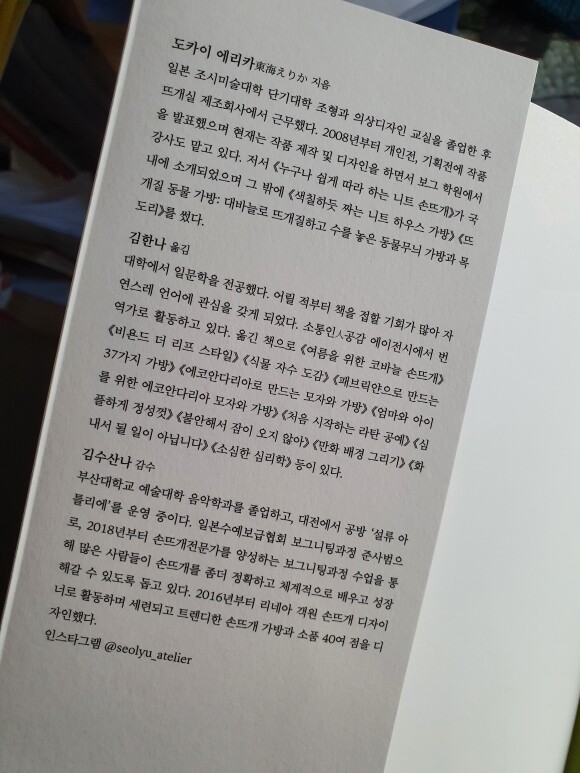 도카이 에리카東海えりか 지음
일본 조시미술대학 단기대학 조형과 의상디자인 교실을 졸업한 후
뜨개실 제조회사에서 근무했다. 2008년부터 개인전, 기획전에 작품
을 발표했으며 현재는 작품 제작 및 디자인을 하면서 보그 학원에서
강사도 맡고 있다. 저서 《누구나 쉽게 따라 하는 니트 손뜨개》가 국
내에 소개되었으며 그 밖에 《색칠하듯 짜는 니트 하우스 가방》 《뜨
개질 동물 가방: 대바늘로 뜨개질하고 수를 놓은 동물무늬 가방과 목
도리》를 썼다.
김한나 옮김
대학에서 일문학을 전공했다. 어릴 적부터 책을 접할 기회가 많아 자
연스레 언어에 관심을 갖게 되었다. 소통인人공감 에이전시에서 번
역가로 활동하고 있다. 옮긴 책으로 《여름을 위한 코바늘 손뜨개》
《비욘드 더 리프 스타일》 《식물 자수 도감》 《패브릭얀으로 만드는
37가지 가방》 《에코안다리아로 만드는 모자와 가방》 《엄마와 아이
를 위한 에코안다리아 모자와 가방》 《처음 시작하는 라탄 공예》 《심
플하게 정성껏》 《불안해서 잠이 오지 않아》 《만화 배경 그리기》 《화
내서 될 일이 아닙니다》 《소심한 심리학》 등이 있다.
김수산나 감수
부산대학교 예술대학 음악학과를 졸업하고, 대전에서 공방 ‘설류 아
틀리에’를 운영 중이다. 일본수예보급협회 보그니팅과정 준사범으
로, 2018년부터 손뜨개전문가를 양성하는 보그니팅과정 수업을 통
해 많은 사람들이 손뜨개를 좀더 정확하고 체계적으로 배우고 성장
해갈 수 있도록 돕고 있다. 2016년부터 리네아 객원 손뜨개 디자이
너로 활동하며 세련되고 트렌디한 손뜨개 가방과 소품 40여 점을 디
자인했다.
인스타그램 @seolyu_atelier